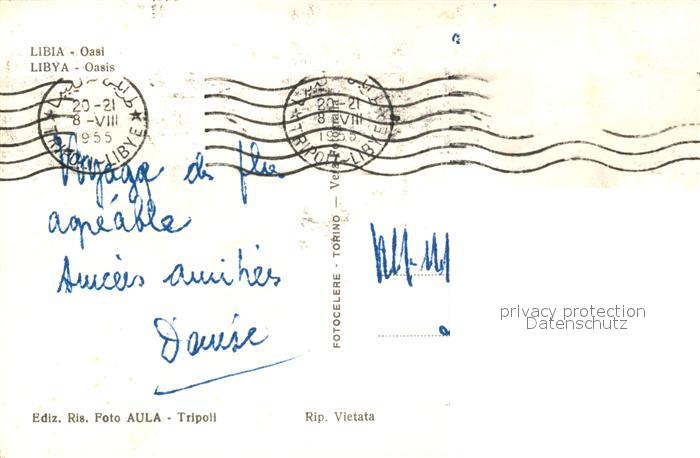 LIBIA - Oasi
LIBYA - Oasis
طرابلس ليبيا
20-21
8-VIII
1955
TRIPOLI-LIBYE
طرابلس ليبيا
20-21
8-VIII
1955
TRIPOLI-LIBYE
Voyage des plus
agréable
Sincères amitiés
Denise
FOTOCELERE - TORINO — Vera Fotografia
privacy protection
Datenschutz
Ediz. Ris. Foto AULA - Tripoli
Rip. Vietata